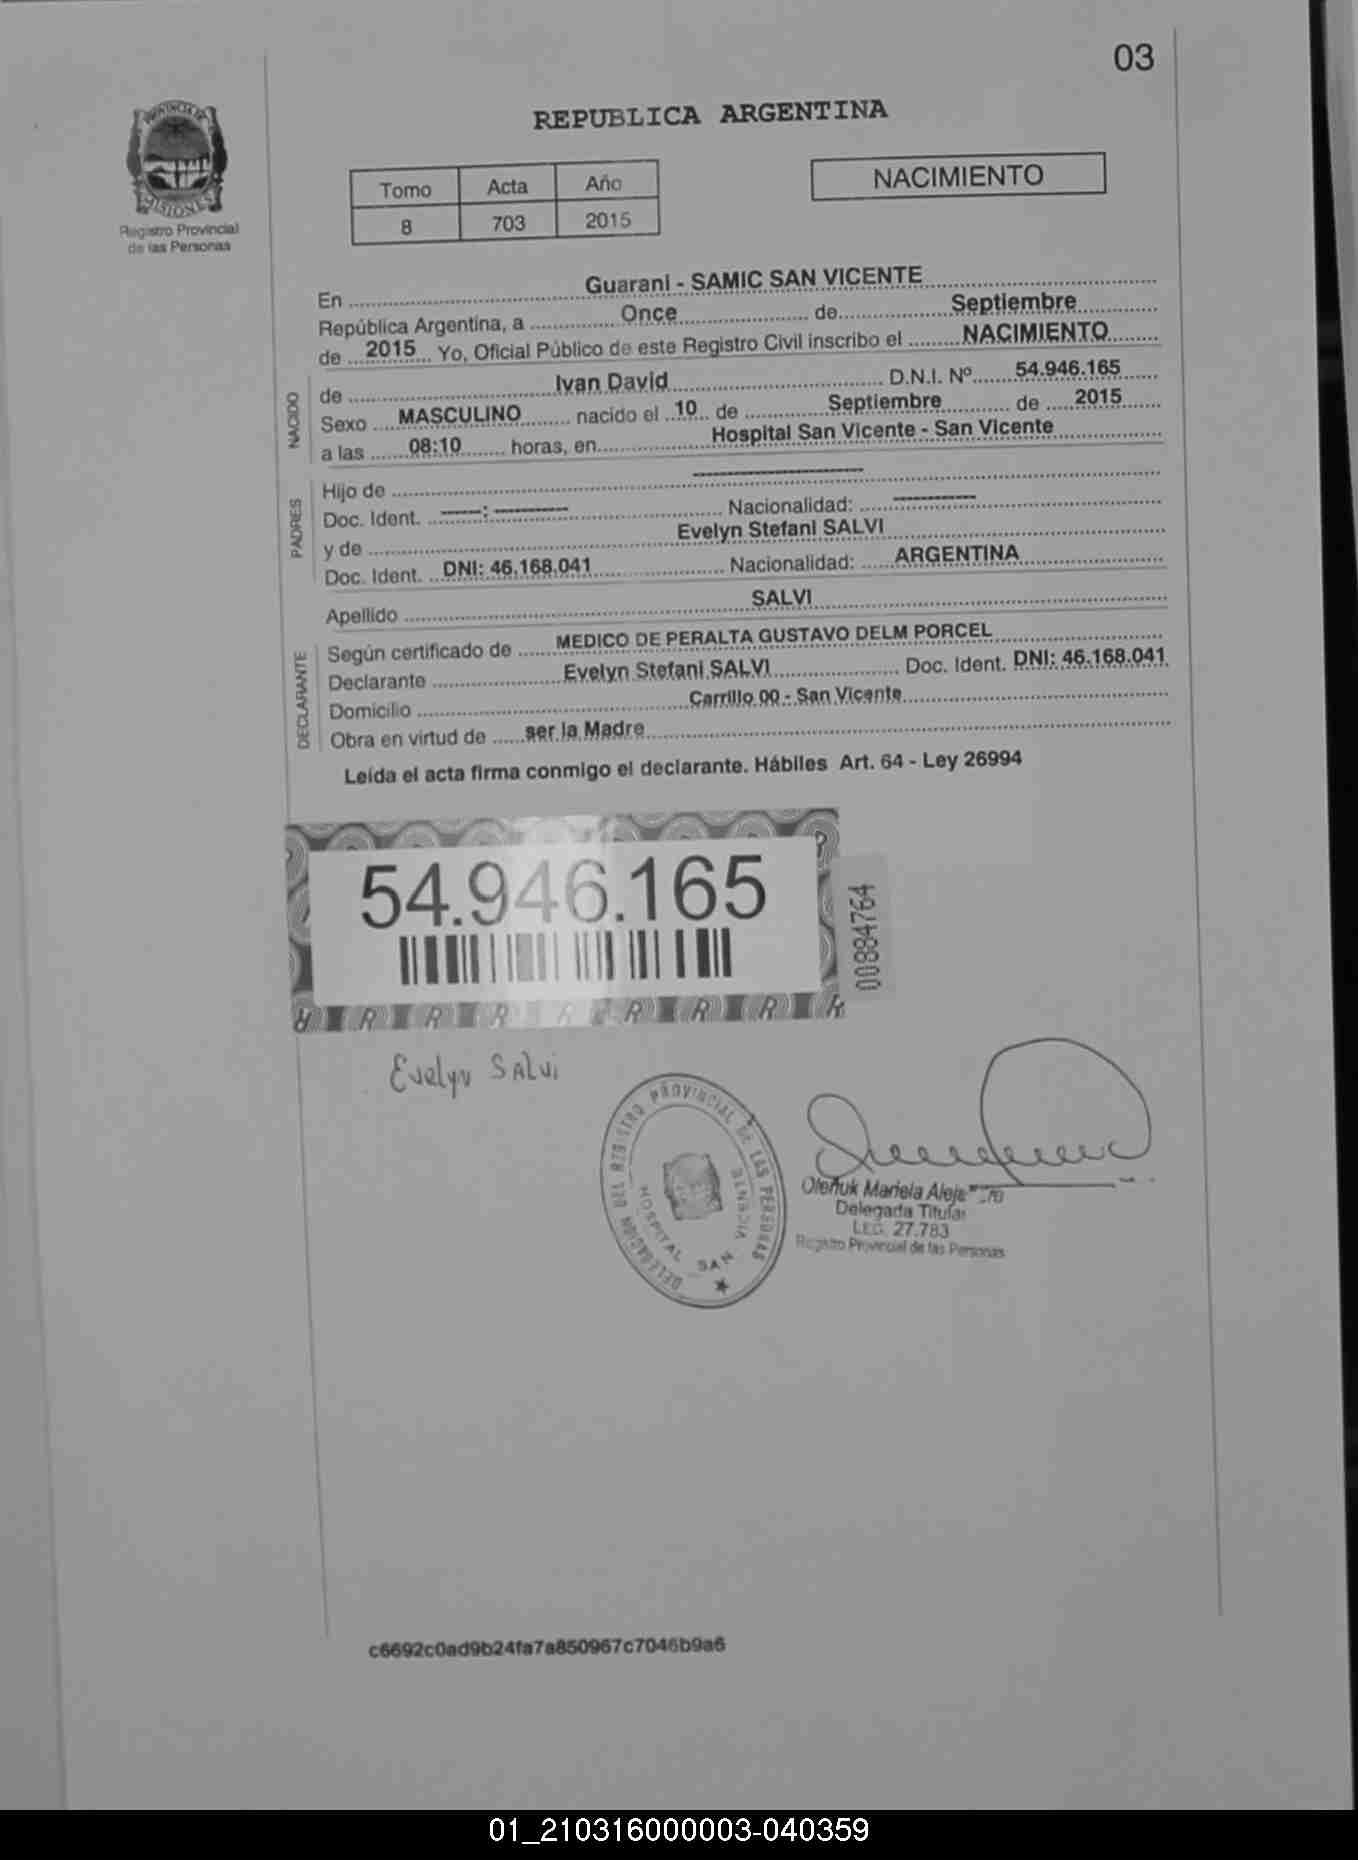 03
PROVINCIA DE
MISIONES
Registro Provincial
de las Personas
REPUBLICA ARGENTINA
Tomo Acta Año
8 703 2015
NACIMIENTO
En Guarani - SAMIC SAN VICENTE
República Argentina, a Once de Septiembre
de 2015 Yo, Oficial Público de este Registro Civil inscribo el NACIMIENTO
NACIDO
de Ivan David D.N.I. Nº 54.946.165
Sexo MASCULINO nacido el 10 de Septiembre de 2015
a las 08:10 horas, en Hospital San Vicente - San Vicente
PADRES
Hijo de --------------------
Doc. Ident. -----: --------- Nacionalidad: ----------
y de Evelyn Stefani SALVI
Doc. Ident. DNI: 46.168.041 Nacionalidad: ARGENTINA
Apellido SALVI
DECLARANTE
Según certificado de MEDICO DE PERALTA GUSTAVO DELM PORCEL
Declarante Evelyn Stefani SALVI Doc. Ident. DNI: 46.168.041
Domicilio Carrillo 00 - San Vicente
Obra en virtud de ser la Madre
Leída el acta firma conmigo el declarante. Hábiles Art. 64 - Ley 26994
54.946.165
00884764
Evelyn SALVi
DELEGACION DEL REGISTRO PROVINCIAL DE LAS PERSONAS
HOSPITAL SAN VICENTE
Olenuk Mariela
Delegada Titular
LEG. 27.783
Registro Provincial de las Personas
c6692c0ad9b24fa7a850967c7046b9a6
01_210316000003-040359